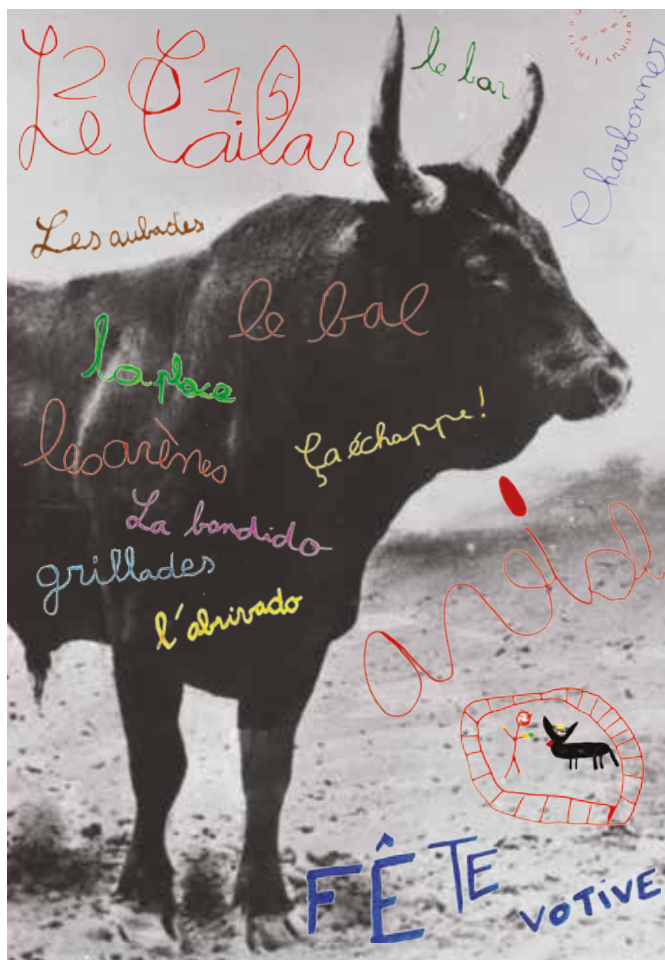 2015
Le Cailar
le bar
Charbonner
Les aubades
le bal
la placa
les arènes
Ça échappe!
La bandido
grillades
l'abrivado
FÊTE
VOTIVE